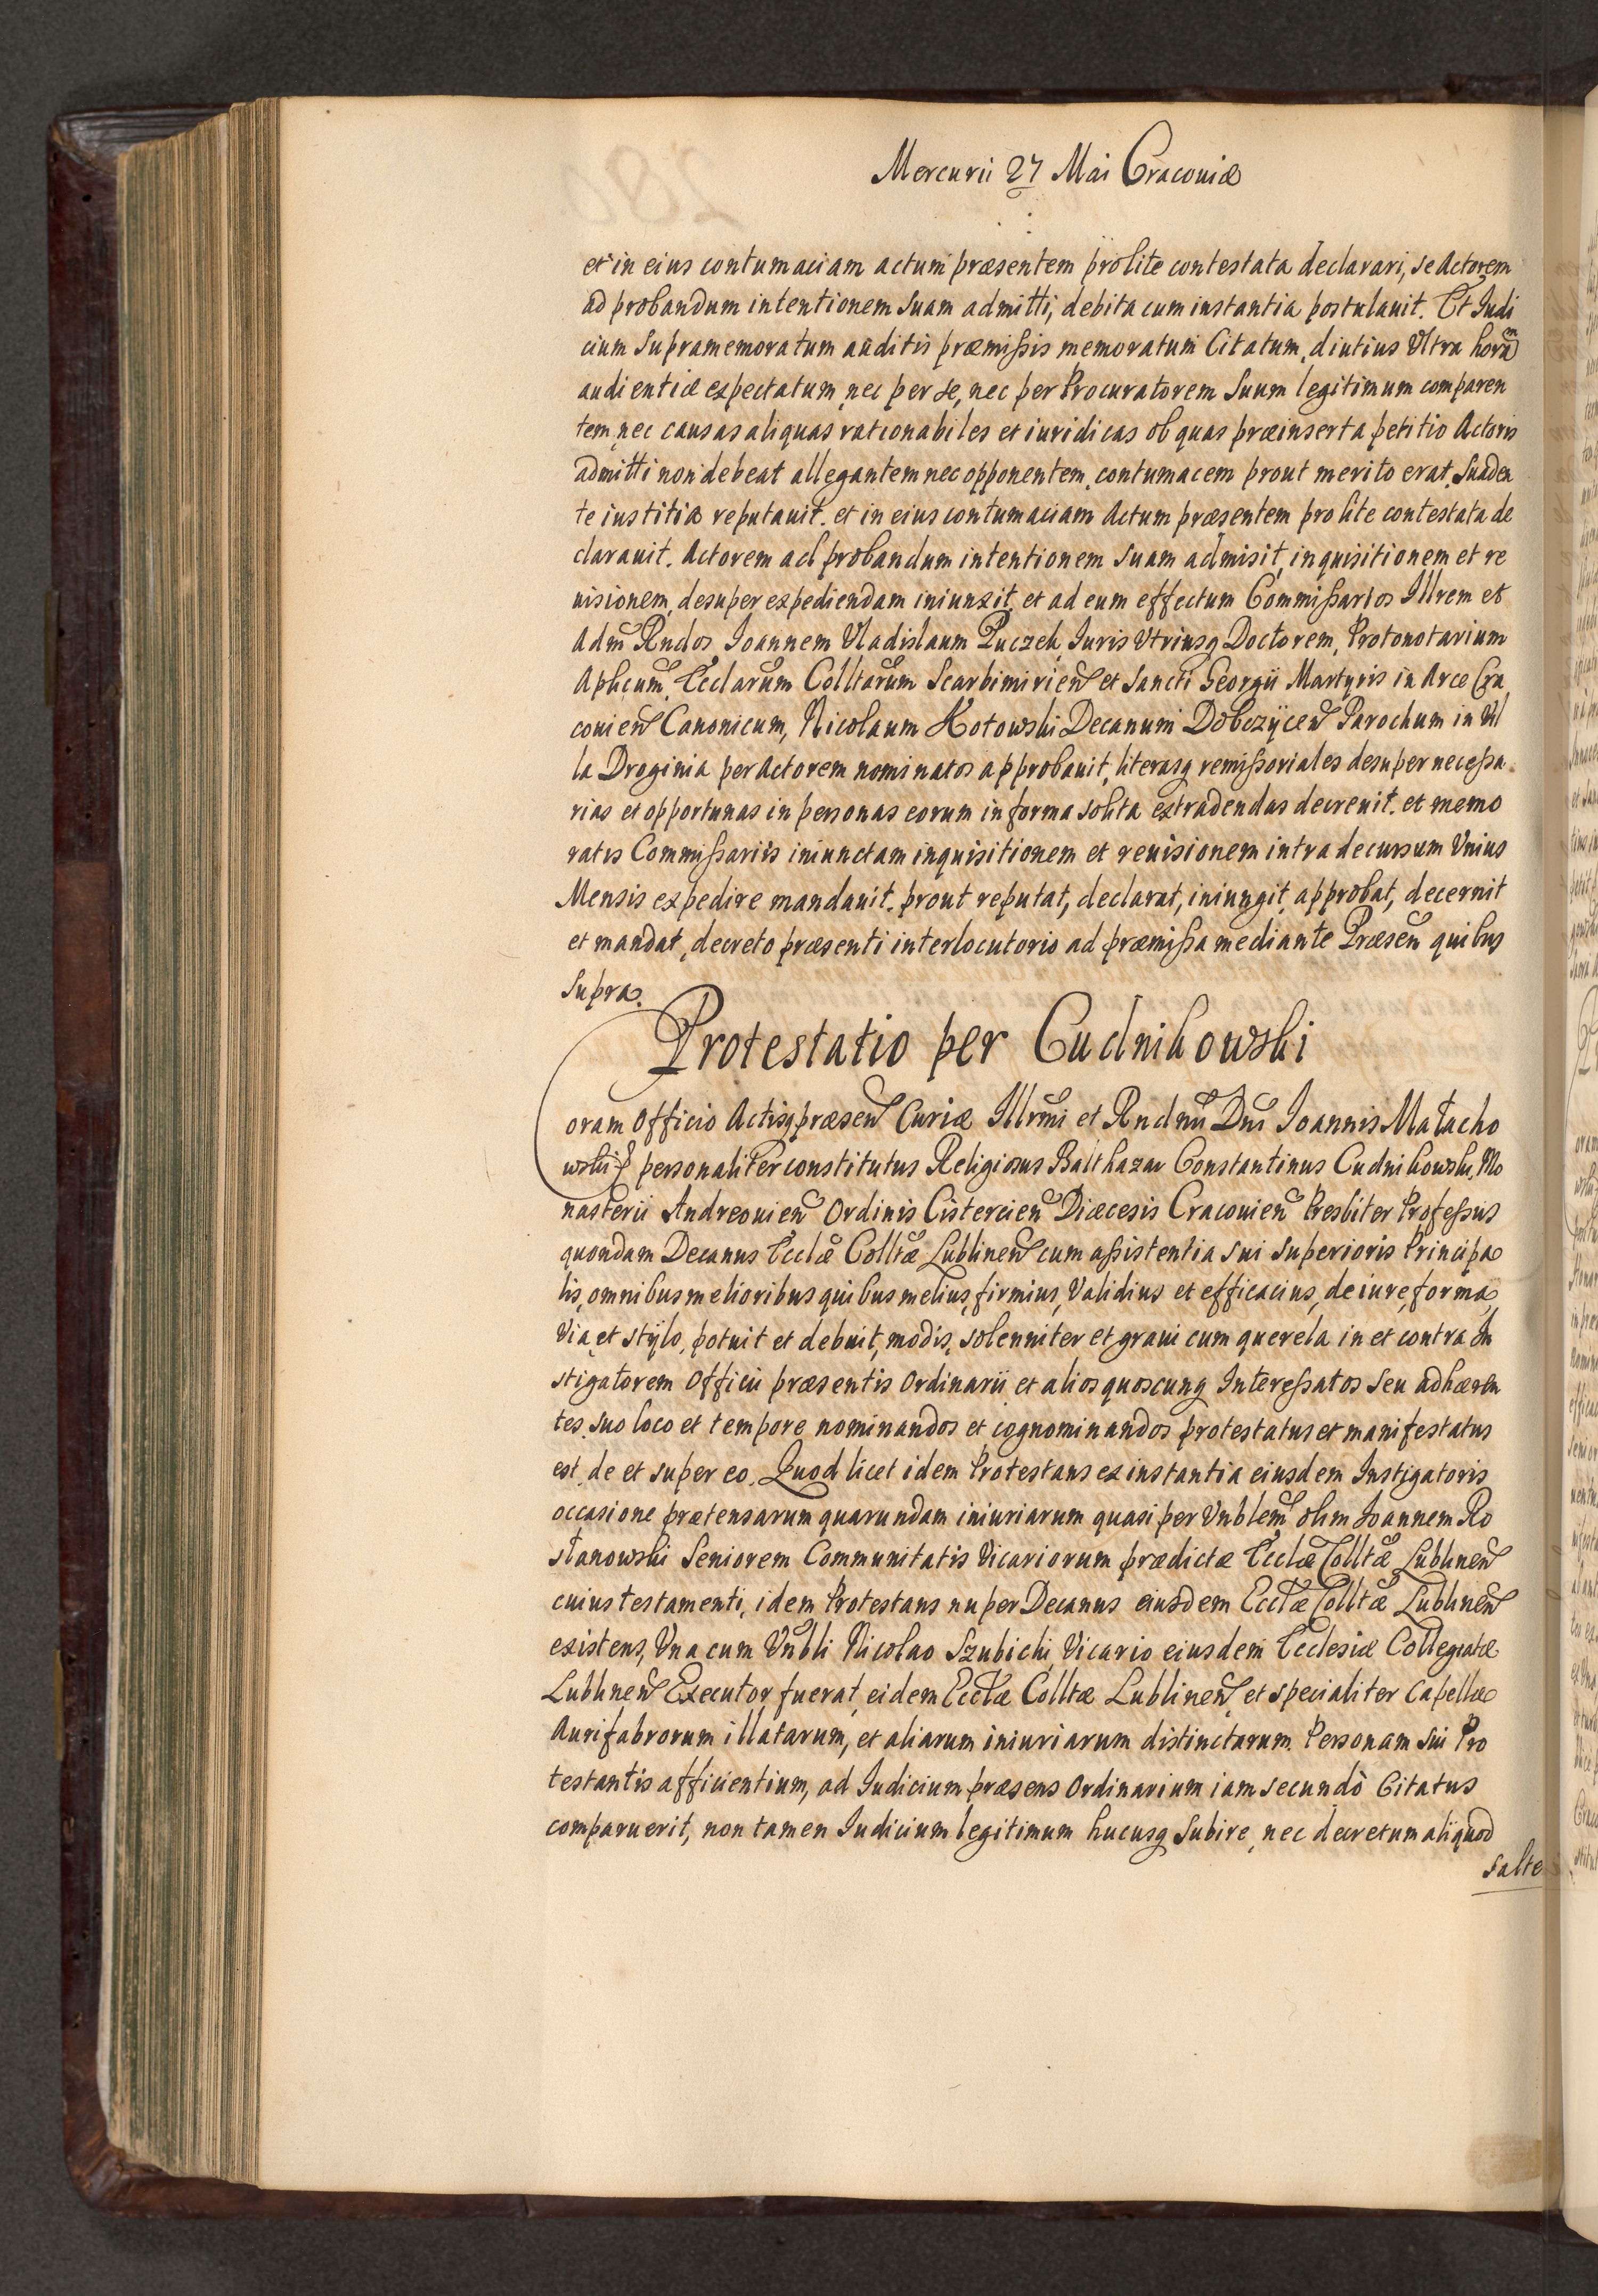 Mercurii 27 Mai Cracouiæ
et in eius contumaciam actum præsentem pro lite contestata declarari, se Actorem
ad probandum intentionem suam admitti, debita cum instantia postulauit. Et Iudi
cium supramemoratum auditis præmissis memoratum Citatum, diutius Vltra horam
audientiæ expectatum, nec per se, nec per Procuratorem suum legitimum comparen
tem, nec causas aliquas rationabiles et iuridicas ob quas præinserta petitio Actoris
admitti non debeat allegantem nec opponentem, contumacem prout merito erat, suaden
te iustitia reputauit. et in eius contumaciam Actum præsentem pro lite contestata de
clarauit. Actorem ad probandum intentionem suam admisit, inquisitionem et re
uisionem, desuper expediendam iniunxit, et ad eum effectum Commissarios Illrem et
Adm Rndos Ioannem Vladislaum Puczek, Iuris Vtriusq Doctorem, Protonotarium
Aplicum, Ecclarum Colltarum Scarbimirien et Sancti Georgii Martyris in Arce Cra
couien Canonicum, Nicolaum Kotowski Decanum Dobczÿcen Parochum in Vil
la Droginia per Actorem nominatos approbauit, literasq remissoriales desuper necessa
rias et opportunas in personas eorum in forma solita extradendas decreuit. et memo
ratis Commissariis iniunctam inquisitionem et reuisionem intra decursum Vnius
Mensis expedire mandauit. prout reputat, declarat, iniungit, approbat, decernit
et mandat, decreto præsenti interlocutorio ad præmissa mediante Præsen quibus
supra.
Protestatio per Cudnikowski
Coram Officio Actisq præsen Curiæ Illrmi et Rndmi Dni Ioannis Małacho
wski personaliter constitutus Religiosus Balthazar Constantinus Cudnikowski, Mo
nasterii Andreouien Ordinis Cistercien Diæcesis Cracouien Presbiter Professus
quondam Decanus Ecclæ Colltæ Lublinen cum assistentia sui superioris Principa
lis, omnibus melioribus quibus melius, firmius, Validius et efficacius, de iure, forma,
Via, et stÿlo, potuit et debuit, modis, solenniter et graui cum querela in et contra In
stigatorem Officii præsentis Ordinarii et alios quoscunq Interessatos seu adhæren
tes, suo loco et tempore nominandos et cognominandos protestatus et manifestatus
est, de et super eo. Quod licet idem Protestans ex instantia eiusdem Instigatoris
occasione prætensarum quarundam iniuriarum quasi per Vnblem olim Ioannem Ro
stanowski Seniorem Communitatis Vicariorum prædictæ Ecclæ Colltæ Lublinen
cuius testamenti, idem Protestans nuper Decanus eiusdem Ecclæ Colltæ Lublinen
existens, Vna cum Vnbli Nicolao Szubicki, Vicario eiusdem Ecclesiæ Collegiatæ
Lublinen Executor fuerat, eidem Ecclæ Colltæ Lublinen, et specialiter Capellæ
Aurifabrorum illatarum, et aliarum iniuriarum distinctarum Personam sui Pro
testantis afficientium, ad Iudicium præsens Ordinarium iam secundò Citatus
comparuerit, non tamen Iudicium legitimum hucusq subire, nec decretum aliquod
salte